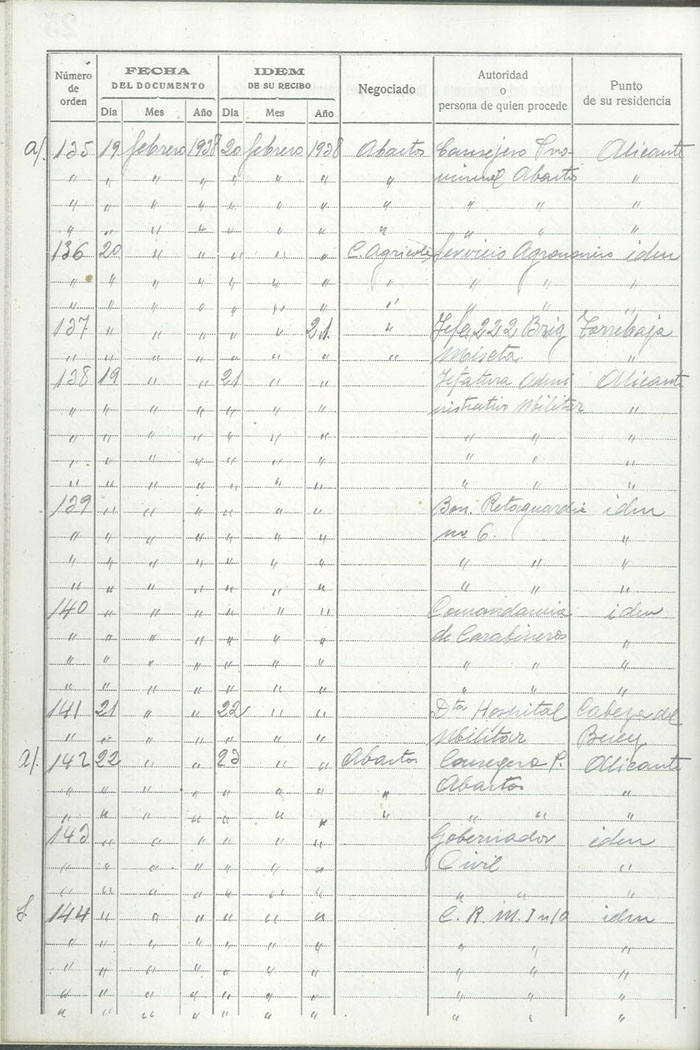 Número de orden FECHA DEL DOCUMENTO IDEM DE SU RECIBO Negociado Autoridad o persona de quien procede Punto de su residencia
Dia Mes Año Dia Mes Año
a/. 135 19 febrero 1938 20 febrero 1938 Abastos Consejero Pro- Alicante
" " " " " " " " vincial Abastos "
" " " " " " " " " " "
" " " " " " " " " " "
136 20 " " " " " C. Agricola Servicio Agronomico iden
" " " " " " " " " " "
" " " " " " " " " " "
137 " " " " " 21 " Jefa 222 Brig Torrebaja
" " " " " " " " Mixta "
138 19 " " 21 " " Jefatura Admi Alicante
" " " " " " " nistrativo Militar "
" " " " " " " " " "
" " " " " " " " " "
" " " " " " " " " "
139 " " " " " " Bon. Retaguardia iden
" " " " " " " nº 6. "
" " " " " " " " " "
" " " " " " " " " "
140 " " " " " " Comandancia iden
" " " " " " " de Carabineros "
" " " " " " " " " "
" " " " " " " " " "
141 21 " " 22 " " Dtor Hospital Cabeza del
" " " " " " " Militar Buey
a/. 142 22 " " 23 " " Abastos Consegero P. Alicante
" " " " " " " " Abastos "
" " " " " " " " " " "
143 " " " " " " Gobernador iden
" " " " " " " Civil "
" " " " " " " " " "
144 " " " " " " C. R. M. I nº 10 iden
" " " " " " " " " "
" " " " " " " " " "
" " " " " " " " " "
" " " " " " " " " "